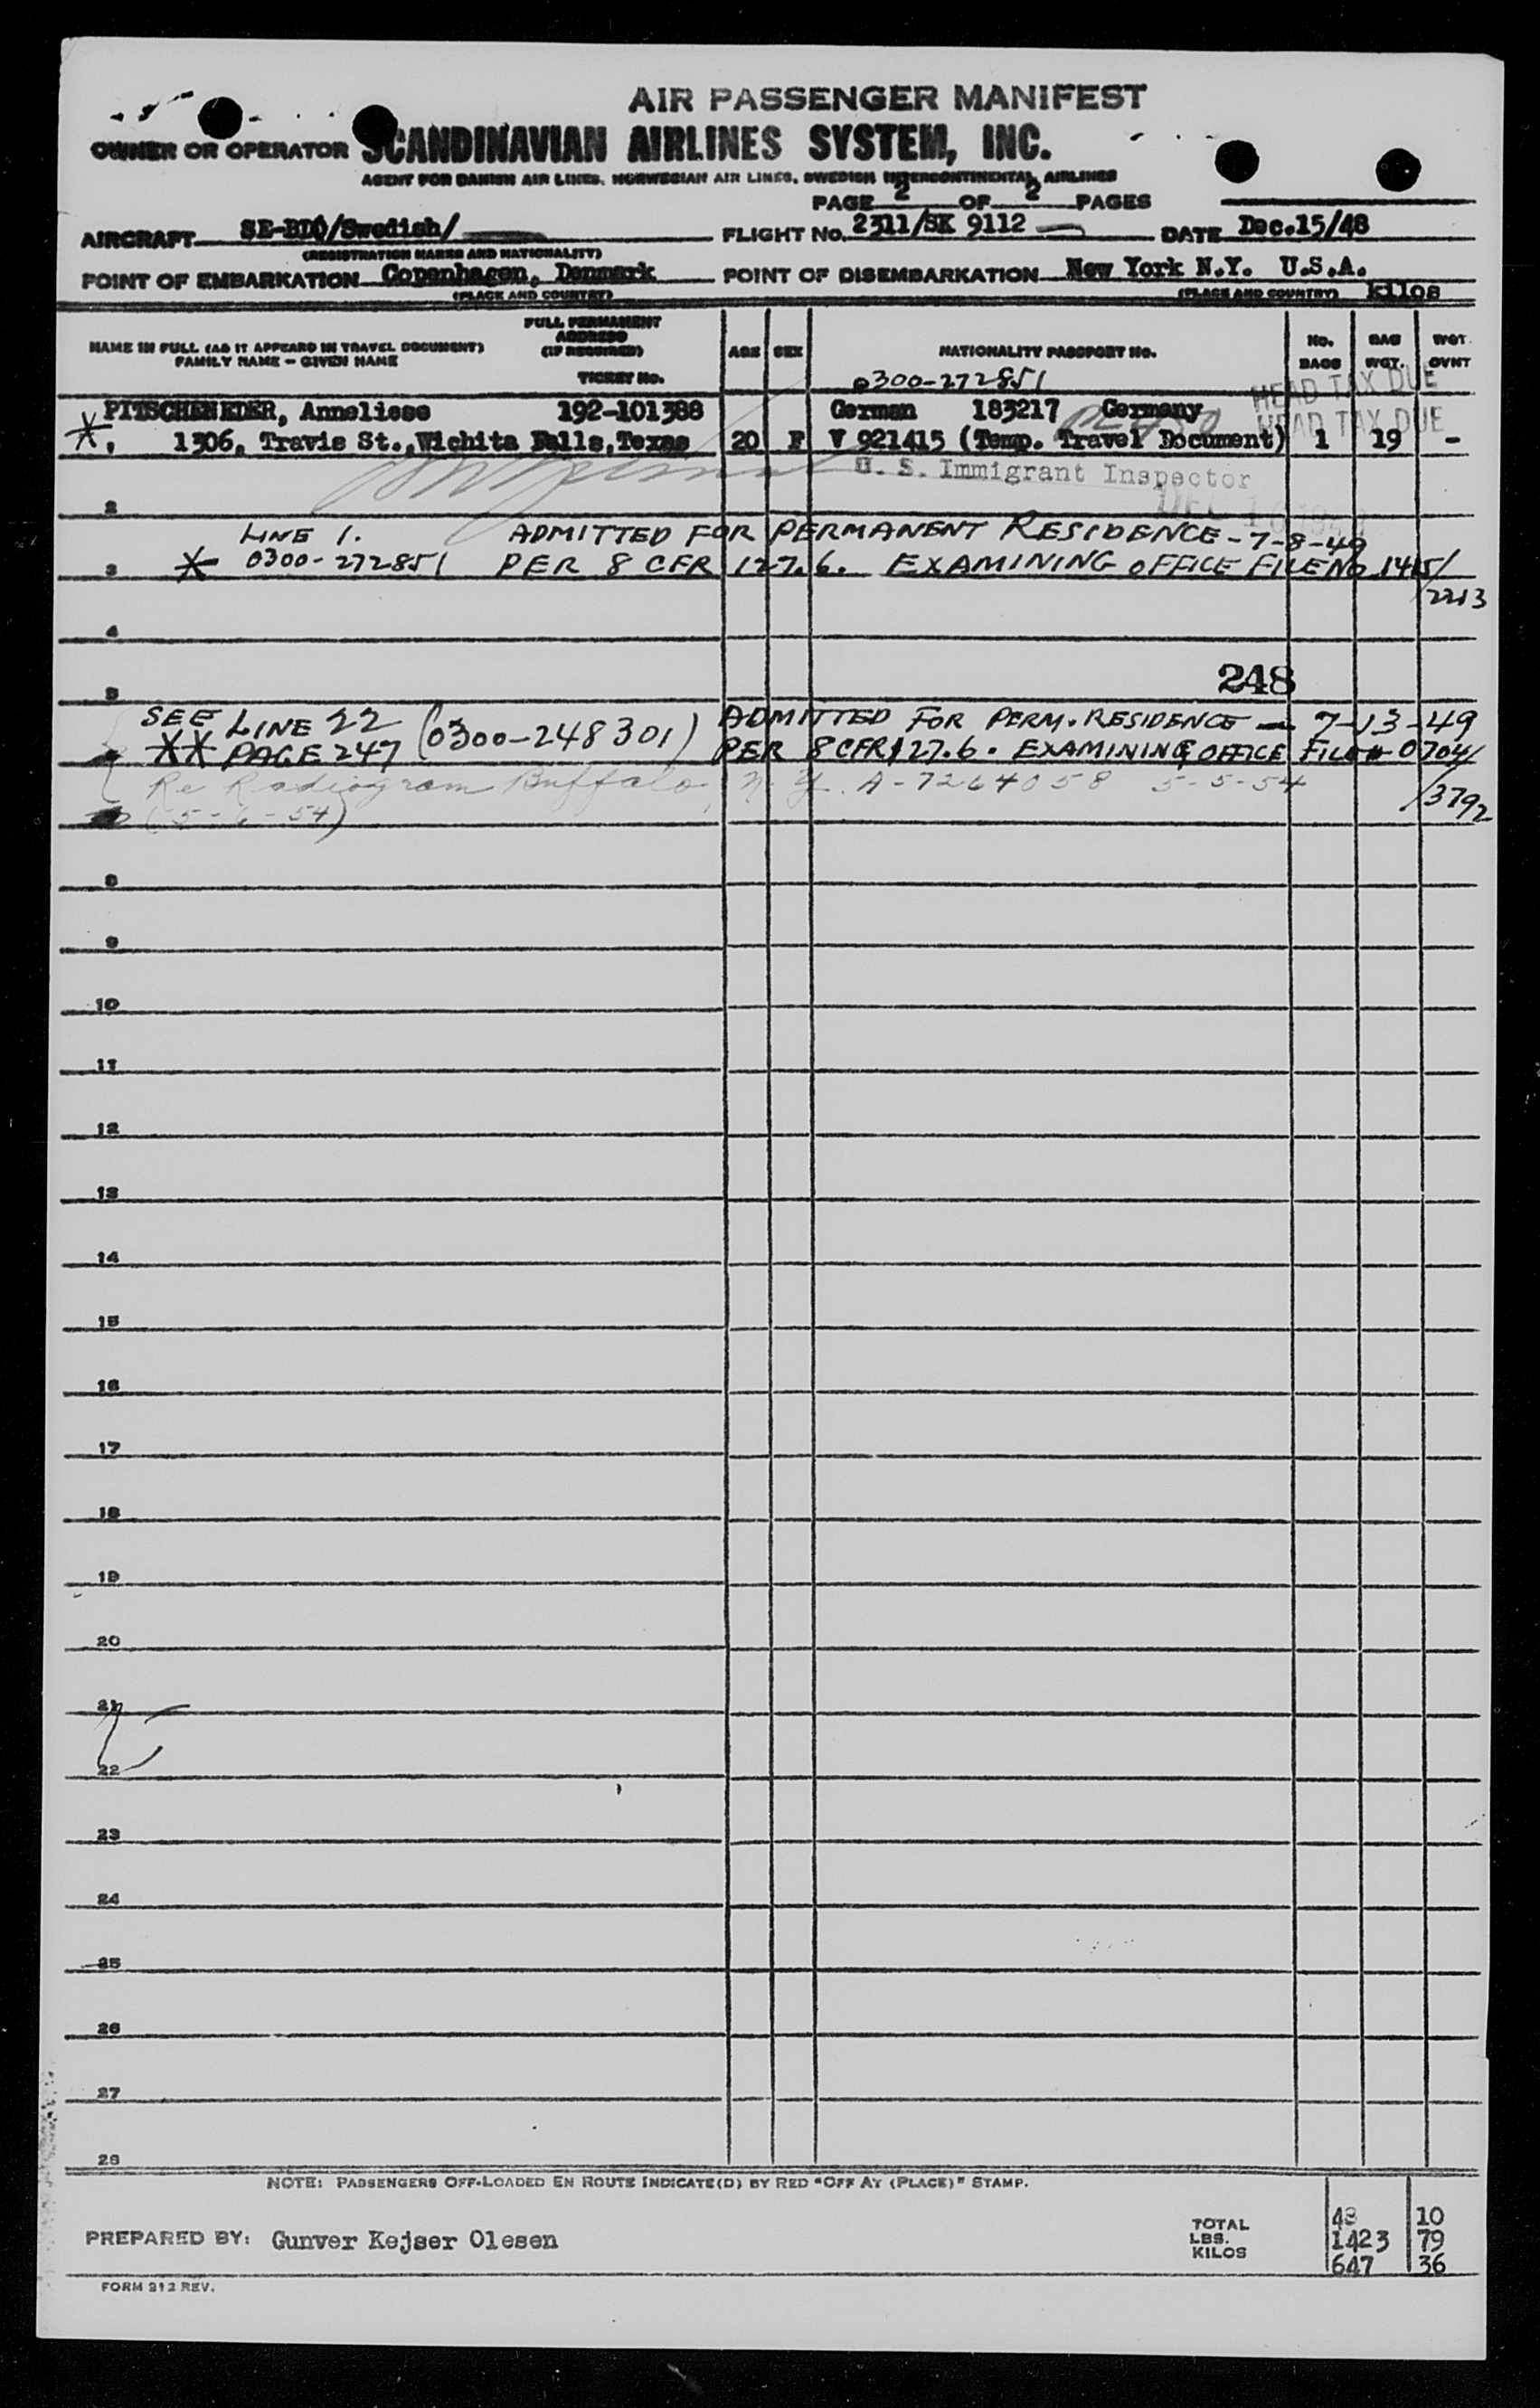 AIR PASSENGER MANIFEST
OWNER OR OPERATOR SCANDINAVIAN AIRLINES SYSTEM, INC.
AGENT FOR DANISH AIR LINES, NORWEGIAN AIR LINES, SWEDISH INTERCONTINENTAL AIRLINES
PAGE 2 OF 2 PAGES
AIRCRAFT SE-BDO/Swedish/ FLIGHT No. 2311/SK 9112 DATE Dec.15/48
(REGISTRATION MARKS AND NATIONALITY)
POINT OF EMBARKATION Copenhagen, Denmark POINT OF DISEMBARKATION New York N.Y. U.S.A.
(PLACE AND COUNTRY) (PLACE AND COUNTRY) kilos
NAME IN FULL (AS IT APPEARS IN TRAVEL DOCUMENT) FAMILY NAME - GIVEN NAME
FULL PERMANENT ADDRESS (IF REQUIRED) TICKET No.
AGE SEX NATIONALITY PASSPORT No. No. BAGS BAG WGT. WGT. OVWT
0300-272851
HEAD TAX DUE
HEAD TAX DUE
PITSCHENEDER, Anneliese 192-101388 German 183217 Germany
* 1306, Travis St.,Wichita Falls,Texas 20 F V 921415 (Temp. Travel Document) 1 19 -
U. S. Immigrant Inspector
2
LINE 1. ADMITTED FOR PERMANENT RESIDENCE - 7-8-49
3 * 0300-272851 PER 8 CFR 127.6. EXAMINING OFFICE FILE NO 1415/
2213
4
248
5
SEE LINE 22 (0300-248301) ADMITTED FOR PERM. RESIDENCE — 7-13-49
** PAGE 247 PER 8 CFR 127.6. EXAMINING OFFICE FILE # 0704/
/3792
Re Radiogram Buffalo, N.Y. A-7264058 5-5-54
(5-6-54)
8
9
10
11
12
13
14
15
16
17
18
19
20
21
22
23
24
25
26
27
28
NOTE: PASSENGERS OFF-LOADED EN ROUTE INDICATE(D) BY RED "OFF AT (PLACE)" STAMP.
PREPARED BY: Gunver Kejser Olesen
TOTAL 48 10
LBS. 1423 79
KILOS 647 36
FORM 212 REV.